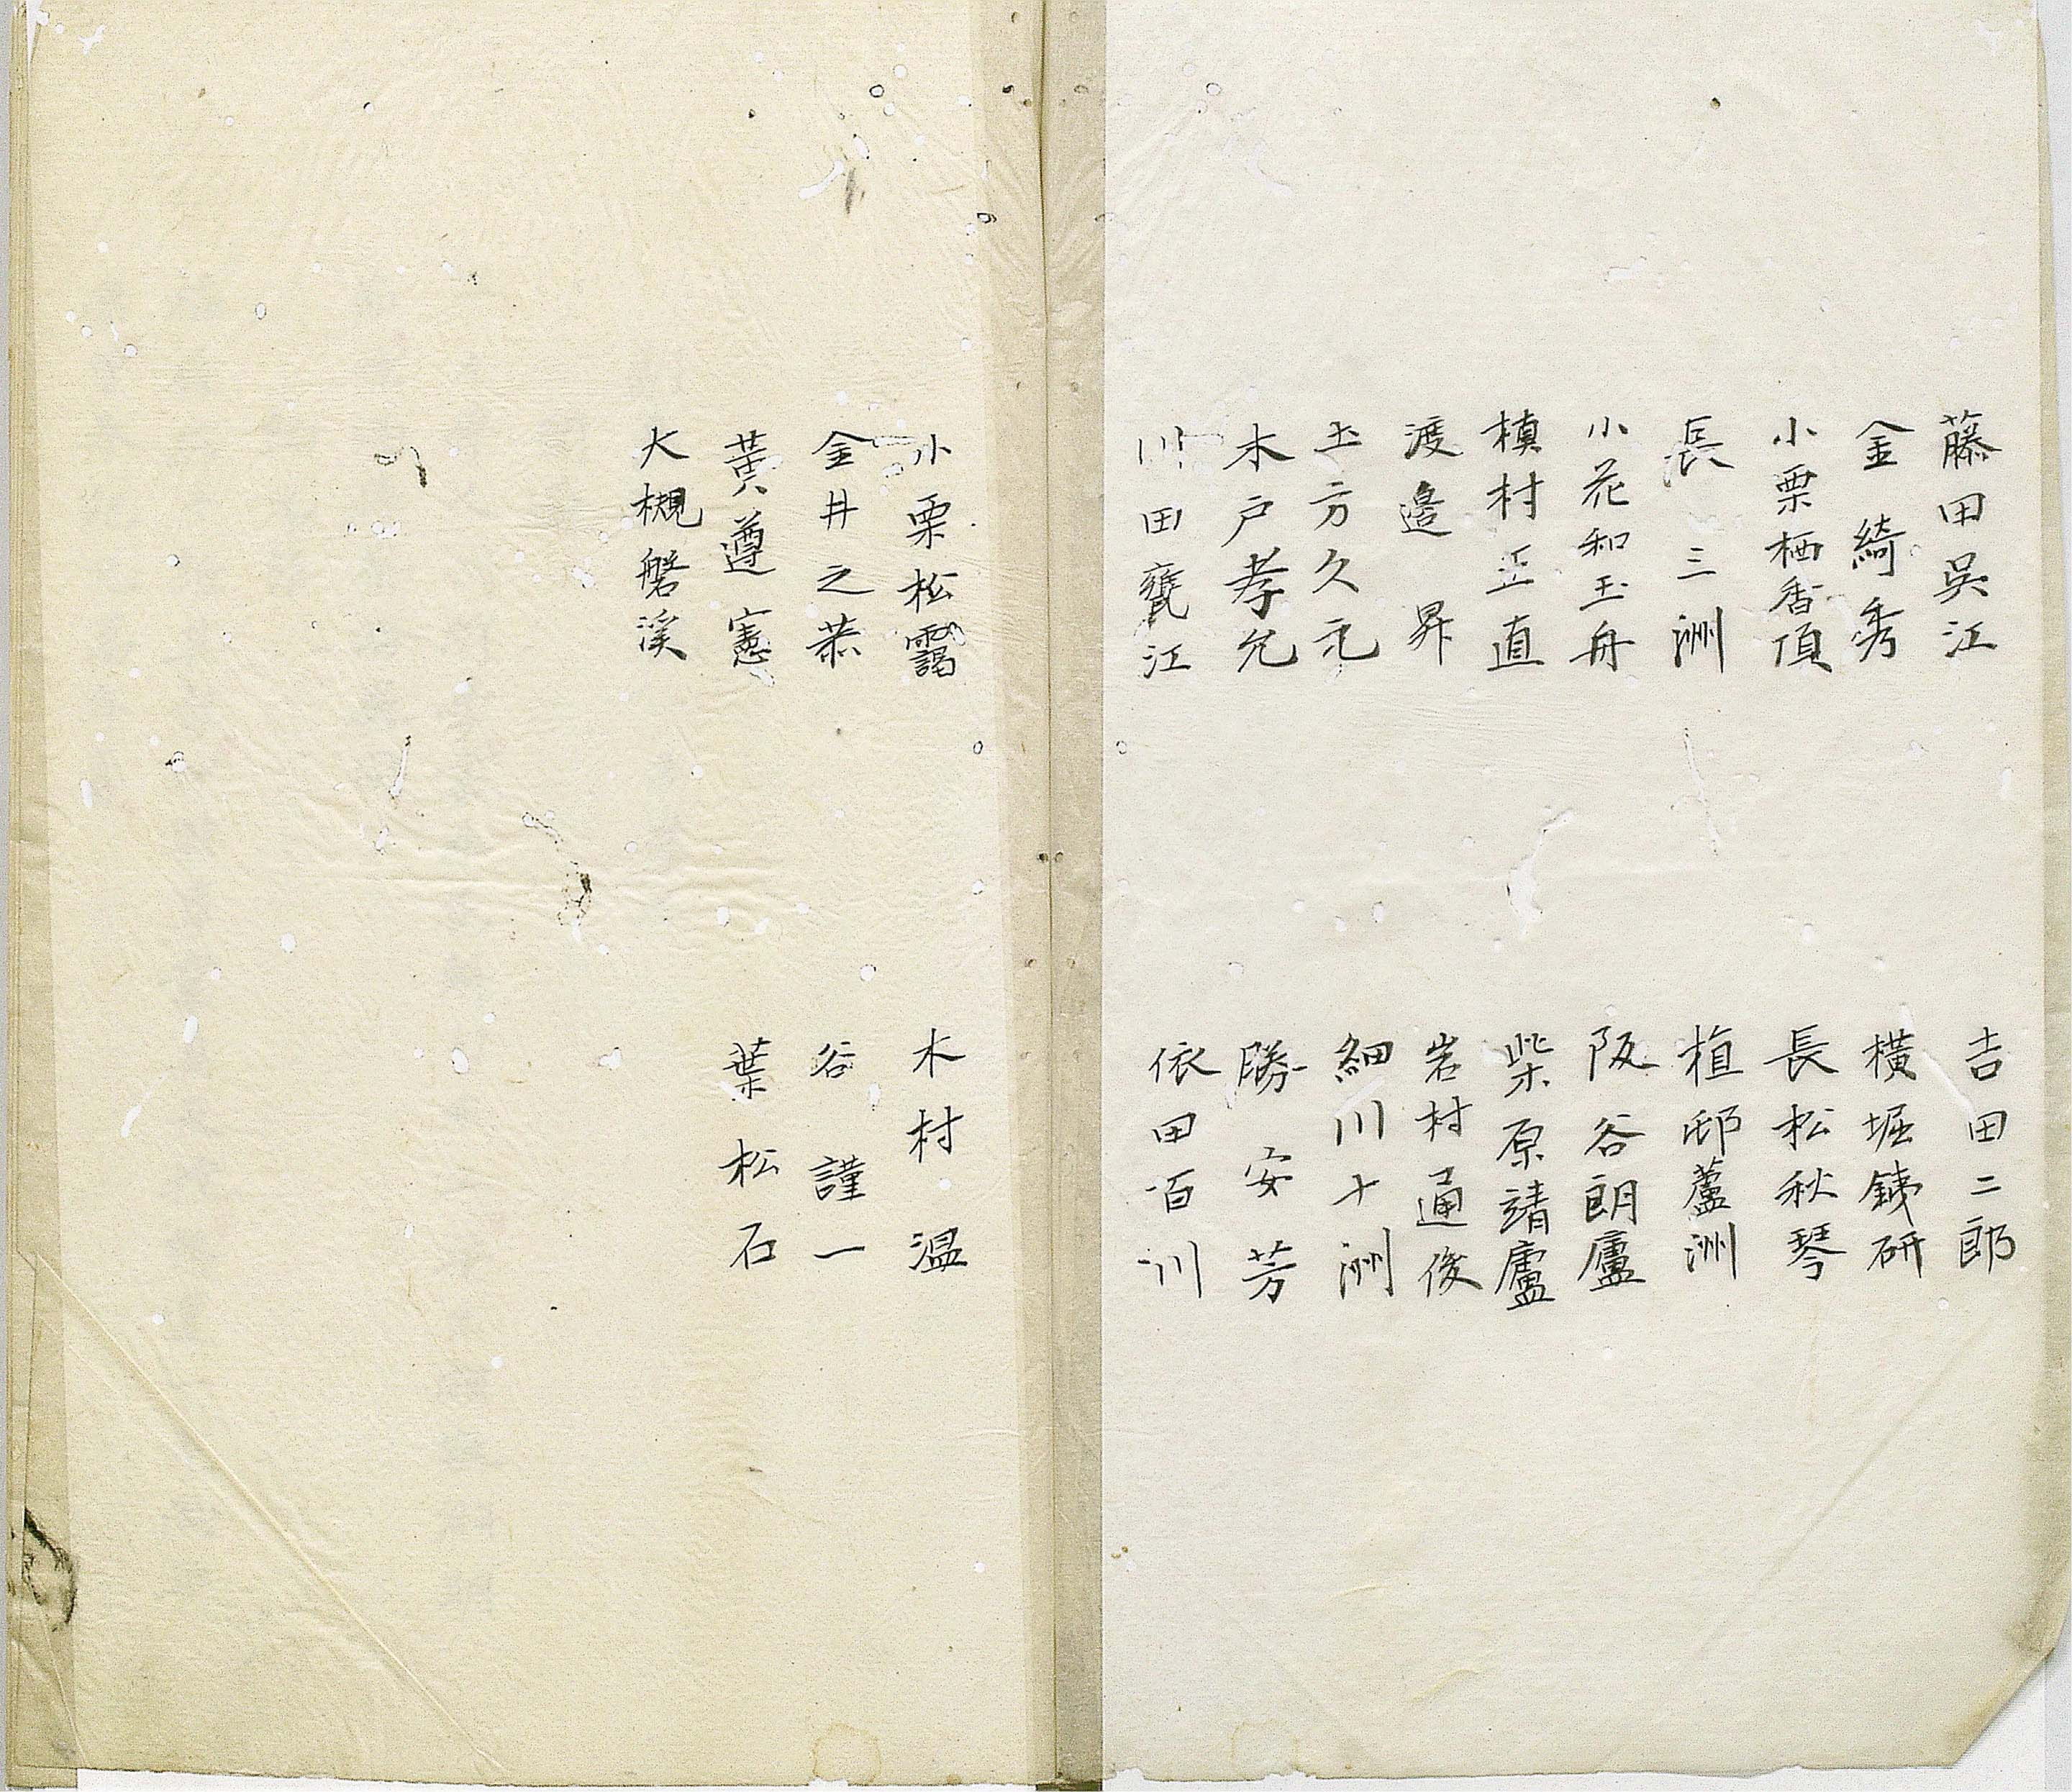 藤田吳江
吉田二郎
金綺秀
橫堀銕研
小栗栖香頂
長松秋琴
長三洲
植邨蘆洲
小花和玉舟
阪谷朗廬
槙村正直
柴原靖廬
渡邉昇
岩村通俊
土方久元
細川十洲
木戸孝允
勝安芳
川田甕江
依田百川
小栗松靄
木村温
金井之恭
谷謹一
黃遵憲
葉松石
大槻磐溪